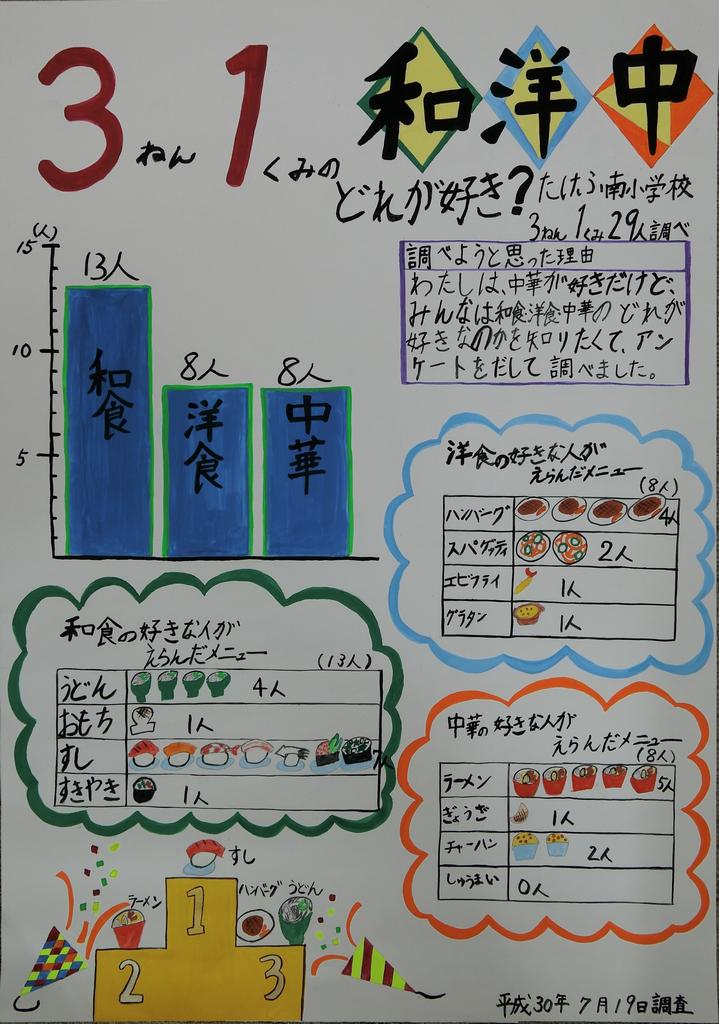 3ねん1くみの
和洋中
どれが好き?
たけふ南小学校
3ねん1くみ29人調べ
調べようと思った理由
わたしは、中華が好きだけど、
みんなは和食洋食中華のどれが
好きなのかを知りたくて、アン
ケートをだして調べました。
(人)
15
10
5
13人
和食
8人
洋食
8人
中華
洋食の好きな人が
えらんだメニュー
(8人)
ハンバーグ 4人
スパゲッティ 2人
エビフライ 1人
グラタン 1人
和食の好きな人が
えらんだメニュー
(13人)
うどん 4人
おもち 1人
すし 7人
すきやき 1人
中華の好きな人が
えらんだメニュー
(8人)
ラーメン 5人
ぎょうざ 1人
チャーハン 2人
しゅうまい 0人
すし
ラーメン
ハンバーグ うどん
1
2
3
平成30年7月19日調査